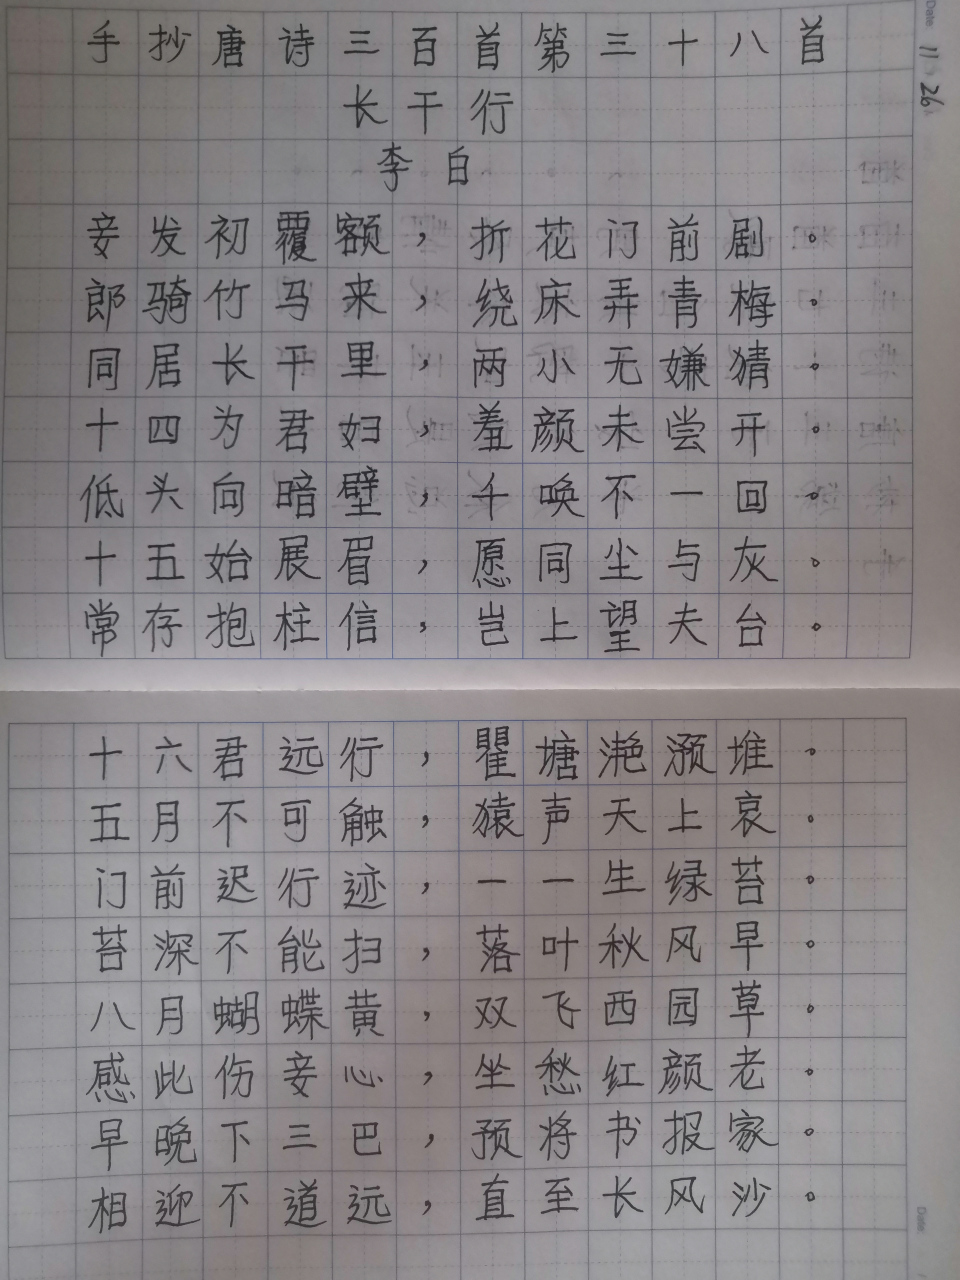 Date: 11.26
手抄唐诗三百首第三十八首
长干行
李白
妾发初覆额，折花门前剧。
郎骑竹马来，绕床弄青梅。
同居长干里，两小无嫌猜。
十四为君妇，羞颜未尝开。
低头向暗壁，千唤不一回。
十五始展眉，愿同尘与灰。
常存抱柱信，岂上望夫台。
十六君远行，瞿塘滟滪堆。
五月不可触，猿声天上哀。
门前迟行迹，一一生绿苔。
苔深不能扫，落叶秋风早。
八月蝴蝶黄，双飞西园草。
感此伤妾心，坐愁红颜老。
早晚下三巴，预将书报家。
相迎不道远，直至长风沙。
Date: